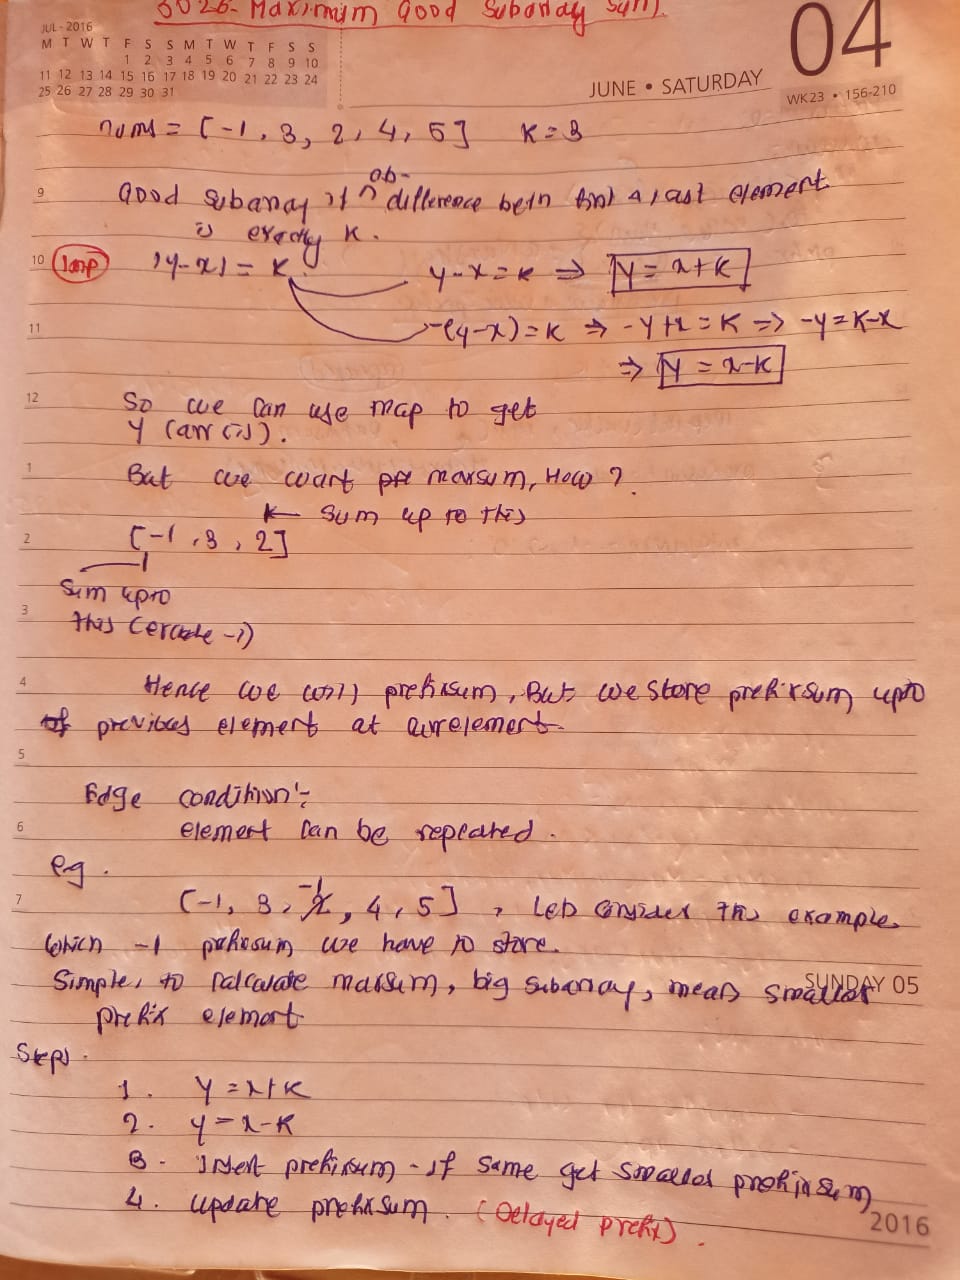 3026- Maximum Good Subarray Sum.
JUL - 2016
M T W T F S S M T W T F S S
1 2 3 4 5 6 7 8 9 10
11 12 13 14 15 16 17 18 19 20 21 22 23 24
25 26 27 28 29 30 31
04
JUNE • SATURDAY
WK23 • 156-210
nums = [-1, 3, 2, 4, 5] K=3
ab-
9 Good subarray if ^ difference betn first & last element
is exactly K.
10 Imp |y-x| = K y-x=K ⇒ y = x+K
11 -(y-x)=K ⇒ -y+x=K ⇒ -y=K-x
⇒ y = x-K
12 So we can use map to get
y (arr[i]).
1 But we want pre maxsum, How?
← Sum up to this
2 [-1, 3, 2]
Sum upto
3 this (exclude -1)
4 Hence we will prefixsum, But we store prefixsum upto
of previous element at currelement.
5
Edge condition:-
6 element can be repeated.
eg.
-1
7 [-1, 3, 2, 4, 5], Lets consider this example.
Which -1 prefixsum we have to store.
Simple, to calculate maxsum, big subarray, means smallest
SUNDAY 05
prefix element.
Steps.
1. y = x+K
2. y = x-K
3. Insert prefixsum - if same get smallest prefixsum
4. update prefixsum. (Delayed prefix).
2016